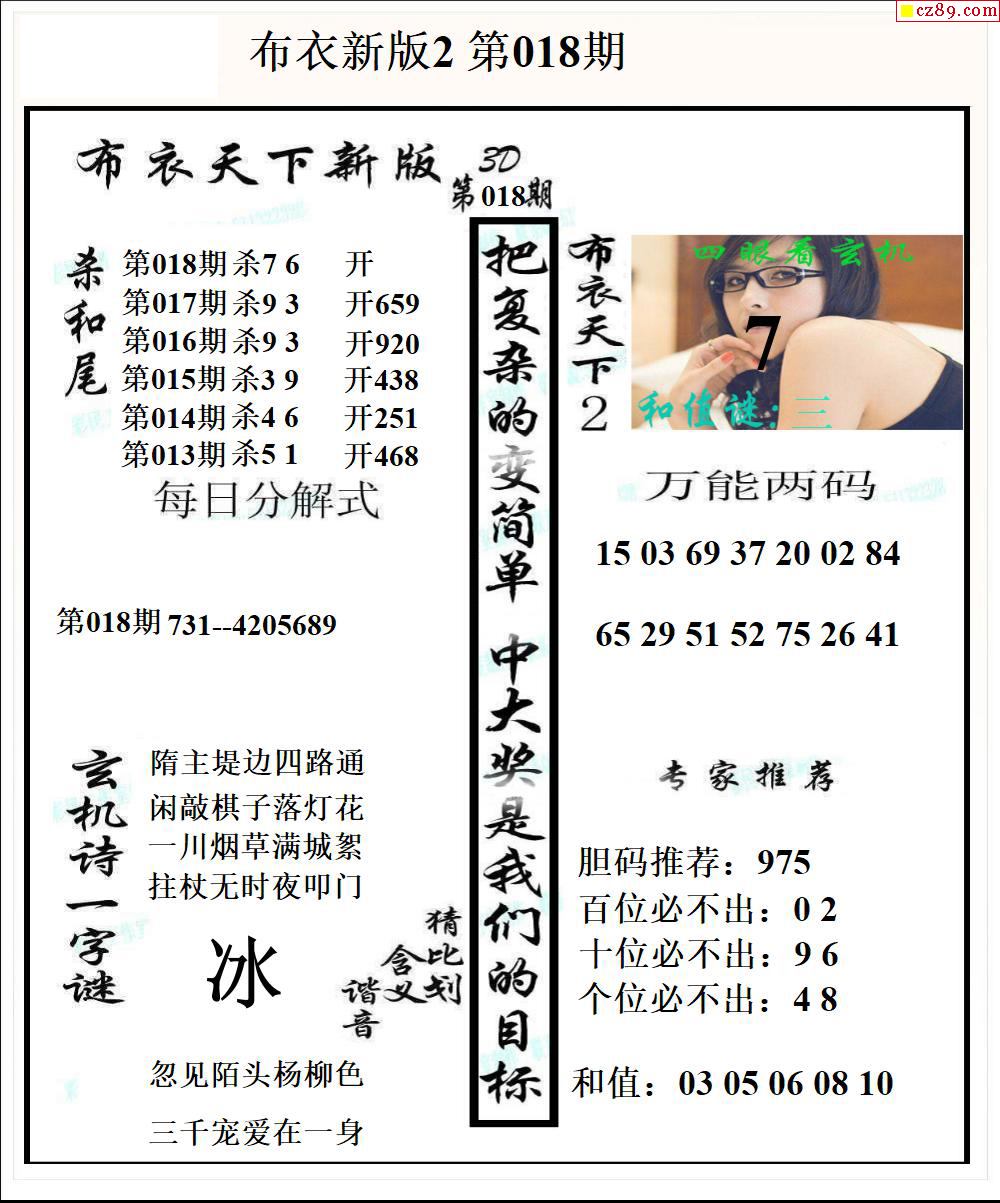 cz89.com
布衣新版2 第018期
布衣天下新版 3D
第018期
杀和尾
第018期 杀7 6 开
第017期 杀9 3 开659
第016期 杀9 3 开920
第015期 杀3 9 开438
第014期 杀4 6 开251
第013期 杀5 1 开468
每日分解式
第018期 731--4205689
玄机诗一字谜
隋主堤边四路通
闲敲棋子落灯花
一川烟草满城絮
拄杖无时夜叩门
冰
猜比划
含义
谐音
忽见陌头杨柳色
三千宠爱在一身
把复杂的变简单 中大奖是我们的目标
布衣天下2
四眼看玄机
7
和值谜：三
万能两码
15 03 69 37 20 02 84
65 29 51 52 75 26 41
专家推荐
胆码推荐：975
百位必不出：0 2
十位必不出：9 6
个位必不出：4 8
和值：03 05 06 08 10